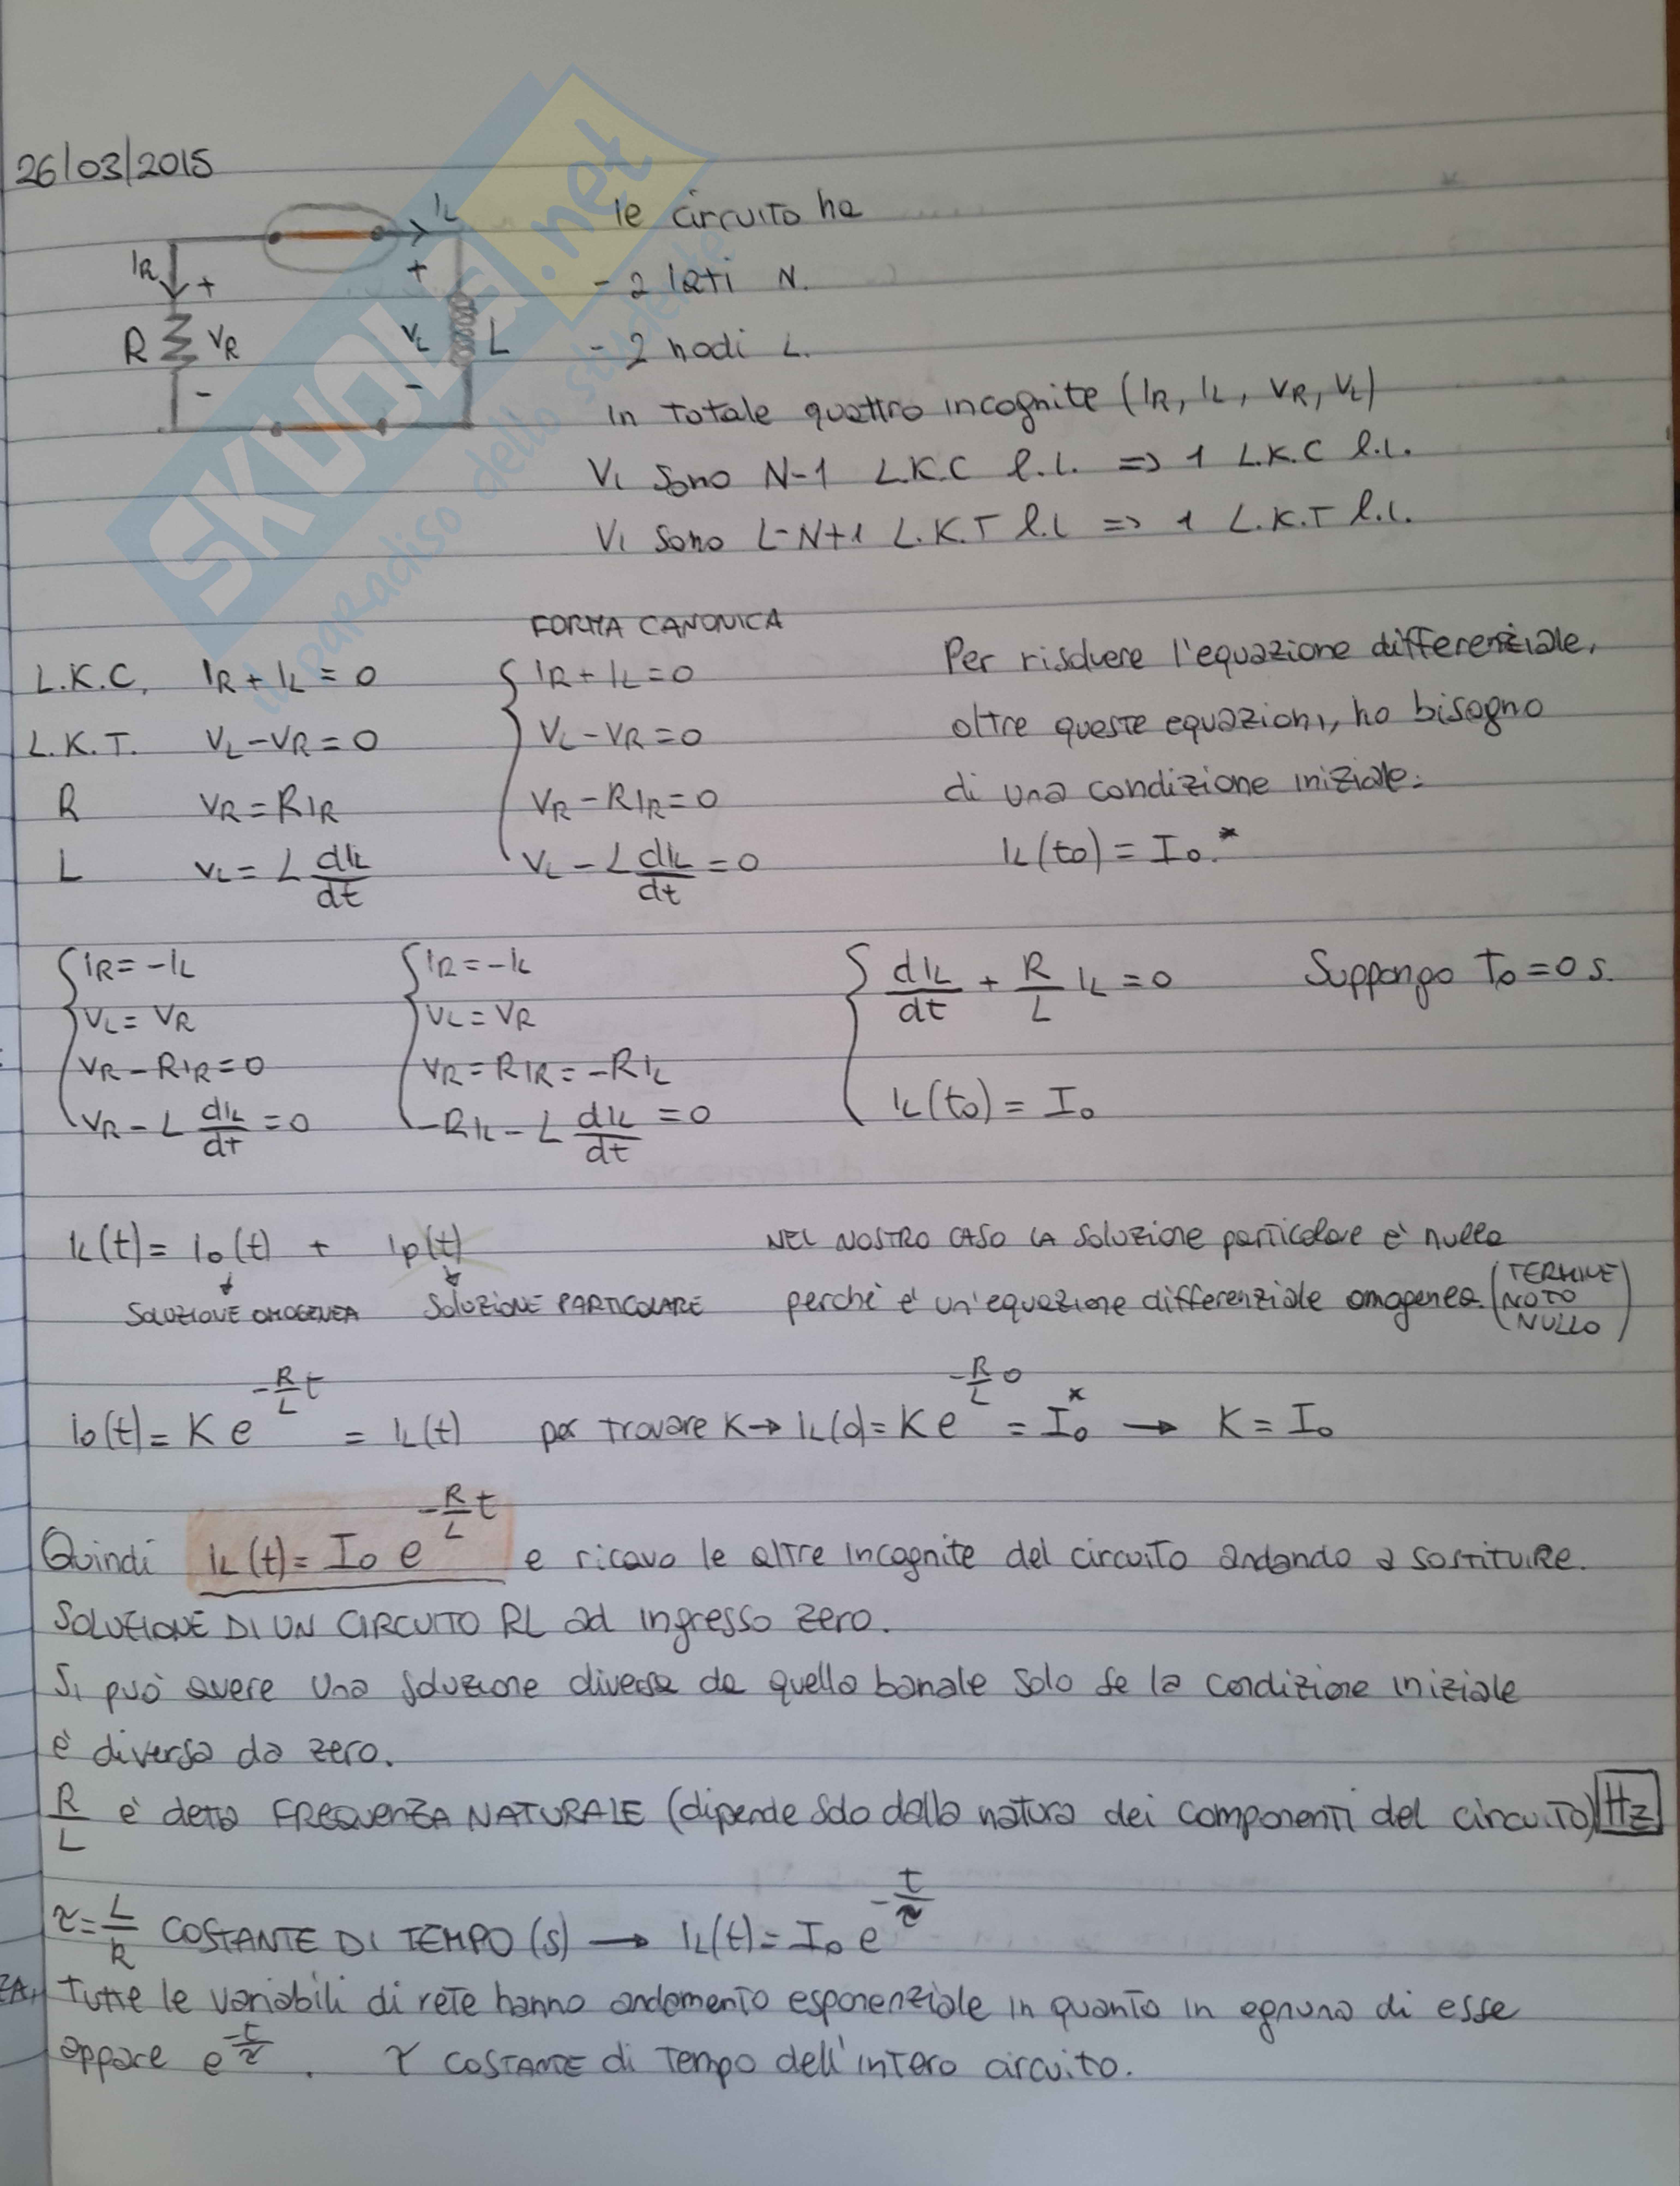 26/03/2015
IL
IR
+
+
R
VR
VL
L
-
-
le circuito ha
- 2 lati N.
- 2 nodi L.
In totale quattro incognite (IR, IL, VR, VL)
Vi sono N-1 L.K.C l.i. => 1 L.K.C l.i.
Vi sono L-N+1 L.K.T l.i => 1 L.K.T l.i.
SKUOLA.net
il paradiso dello studente
FORMA CANONICA
L.K.C. IR + IL = 0
L.K.T. VL - VR = 0
R VR = R IR
L VL = L dIL/dt
{ IR + IL = 0
VL - VR = 0
VR - R IR = 0
VL - L dIL/dt = 0
Per risolvere l'equazione differenziale,
oltre queste equazioni, ho bisogno
di una condizione iniziale:
IL(t0) = I0.*
{ IR = -IL
VL = VR
VR - R IR = 0
VR - L dIL/dt = 0
{ IR = -IL
VL = VR
VR = R IR = -R IL
-R IL - L dIL/dt = 0
{ dIL/dt + R/L IL = 0
IL(t0) = I0
Suppongo T0 = 0 s.
IL(t) = I0(t) + Ip(t)
SOLUZIONE OMOGENEA SOLUZIONE PARTICOLARE
NEL NOSTRO CASO LA soluzione particolare è nulla
perché è un'equazione differenziale omogenea. (TERMINE NOTO NULLO)
I0(t) = K e^(-R/L t) = IL(t) per trovare K → IL(0) = K e^(-R/L 0) = I0* → K = I0
Quindi IL(t) = I0 e^(-R/L t) e ricavo le altre incognite del circuito andando a sostituire.
SOLUZIONE DI UN CIRCUITO RL ad ingresso zero.
Si può avere una soluzione diversa da quella banale solo se la condizione iniziale
è diversa da zero.
R/L è detta FREQUENZA NATURALE (dipende solo dalla natura dei componenti del circuito) Hz
τ = L/R COSTANTE DI TEMPO (s) → IL(t) = I0 e^(-t/τ)
Tutte le variabili di rete hanno andamento esponenziale in quanto in ognuna di esse
appare e^(-t/τ). τ COSTANTE di tempo dell'intero circuito.